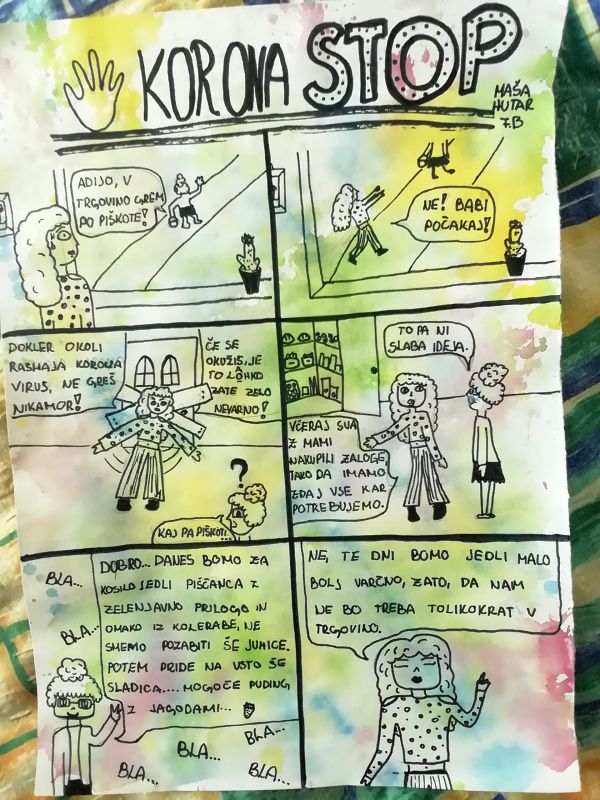 KORONA STOP
MAŠA
HUTAR
7.B
ADIJO, V
TRGOVINO GREM
PO PIŠKOTE!
NE! BABI
POČAKAJ!
DOKLER OKOLI
RASHAJA KORONA
VIRUS, NE GREŠ
NIKAMOR!
ČE SE
OKUŽIŠ, JE
TO LAHKO
ZATE ZELO
NEVARNO!
?
KAJ PA PIŠKOTI...
TO PA NI
SLABA IDEJA.
VČERAJ SVA
Z MAMI
NAKUPILI ZALOGE,
TAKO DA IMAMO
ZDAJ VSE KAR
POTREBUJEMO.
BLA...
BLA...
DOBRO... DANES BOMO ZA
KOSILO JEDLI PIŠČANCA Z
ZELENJAVNO PRILOGO IN
OMAKO IZ KOLERABE, NE
SMEMO POZABITI ŠE JUHICE.
POTEM PRIDE NA VSTO ŠE
SLADICA.... MOGOČE PUDING
Z JAGODAMI...
BLA...
BLA...
BLA...
BLA...
NE, TE DNI BOMO JEDLI MALO
BOLJ VARČNO, ZATO, DA NAM
NE BO TREBA TOLIKOKRAT V
TRGOVINO.